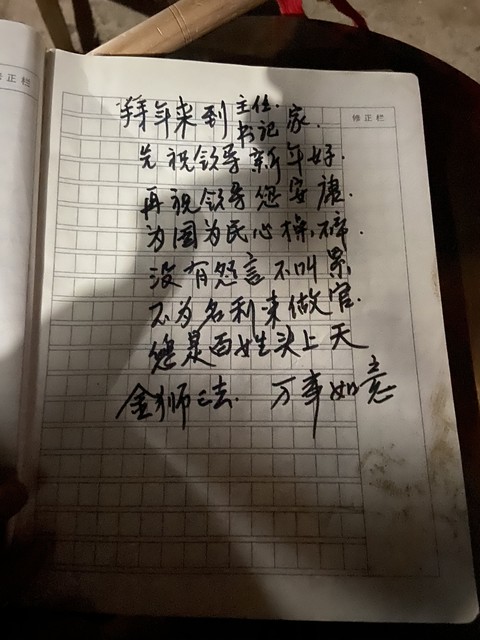 修正栏
拜年来到主任.书记家.
先祝领导新年好.
再祝领导您安康.
为国为民心操碎.
没有怨言不叫累
不为名利来做官.
您是百姓头上天
金狮 万事如意
正栏